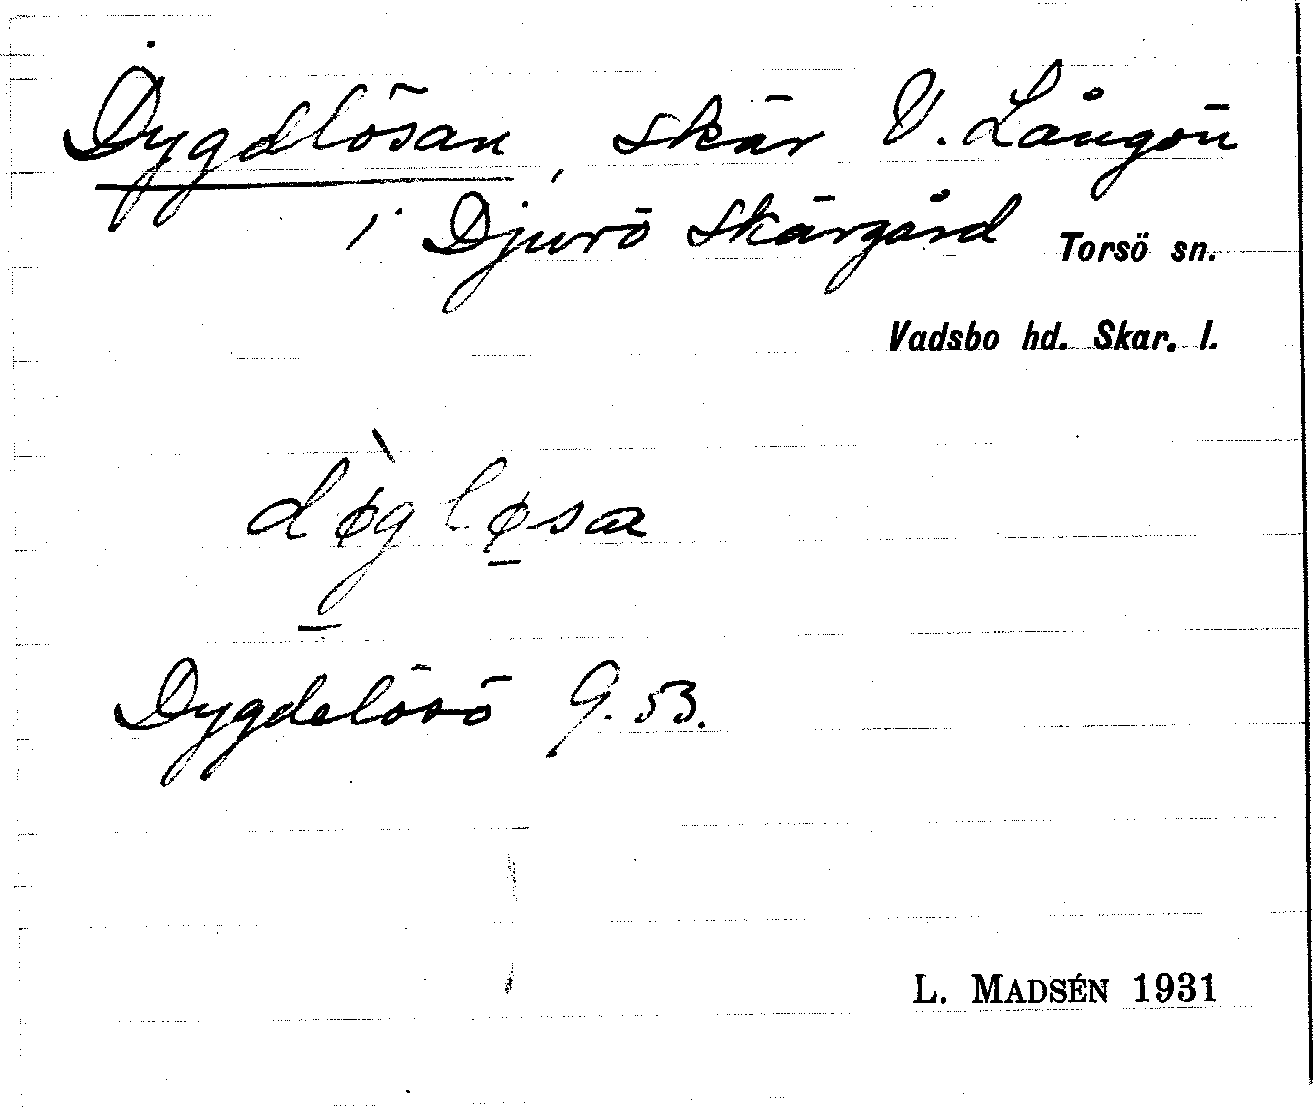 Dygdlösan, skär V. Långön
i Djurö skärgård Torsö sn.
Vadsbo hd. Skar. l.
dø̀gløsa
Dygdelösö G. 53.
L. MADSÉN 1931